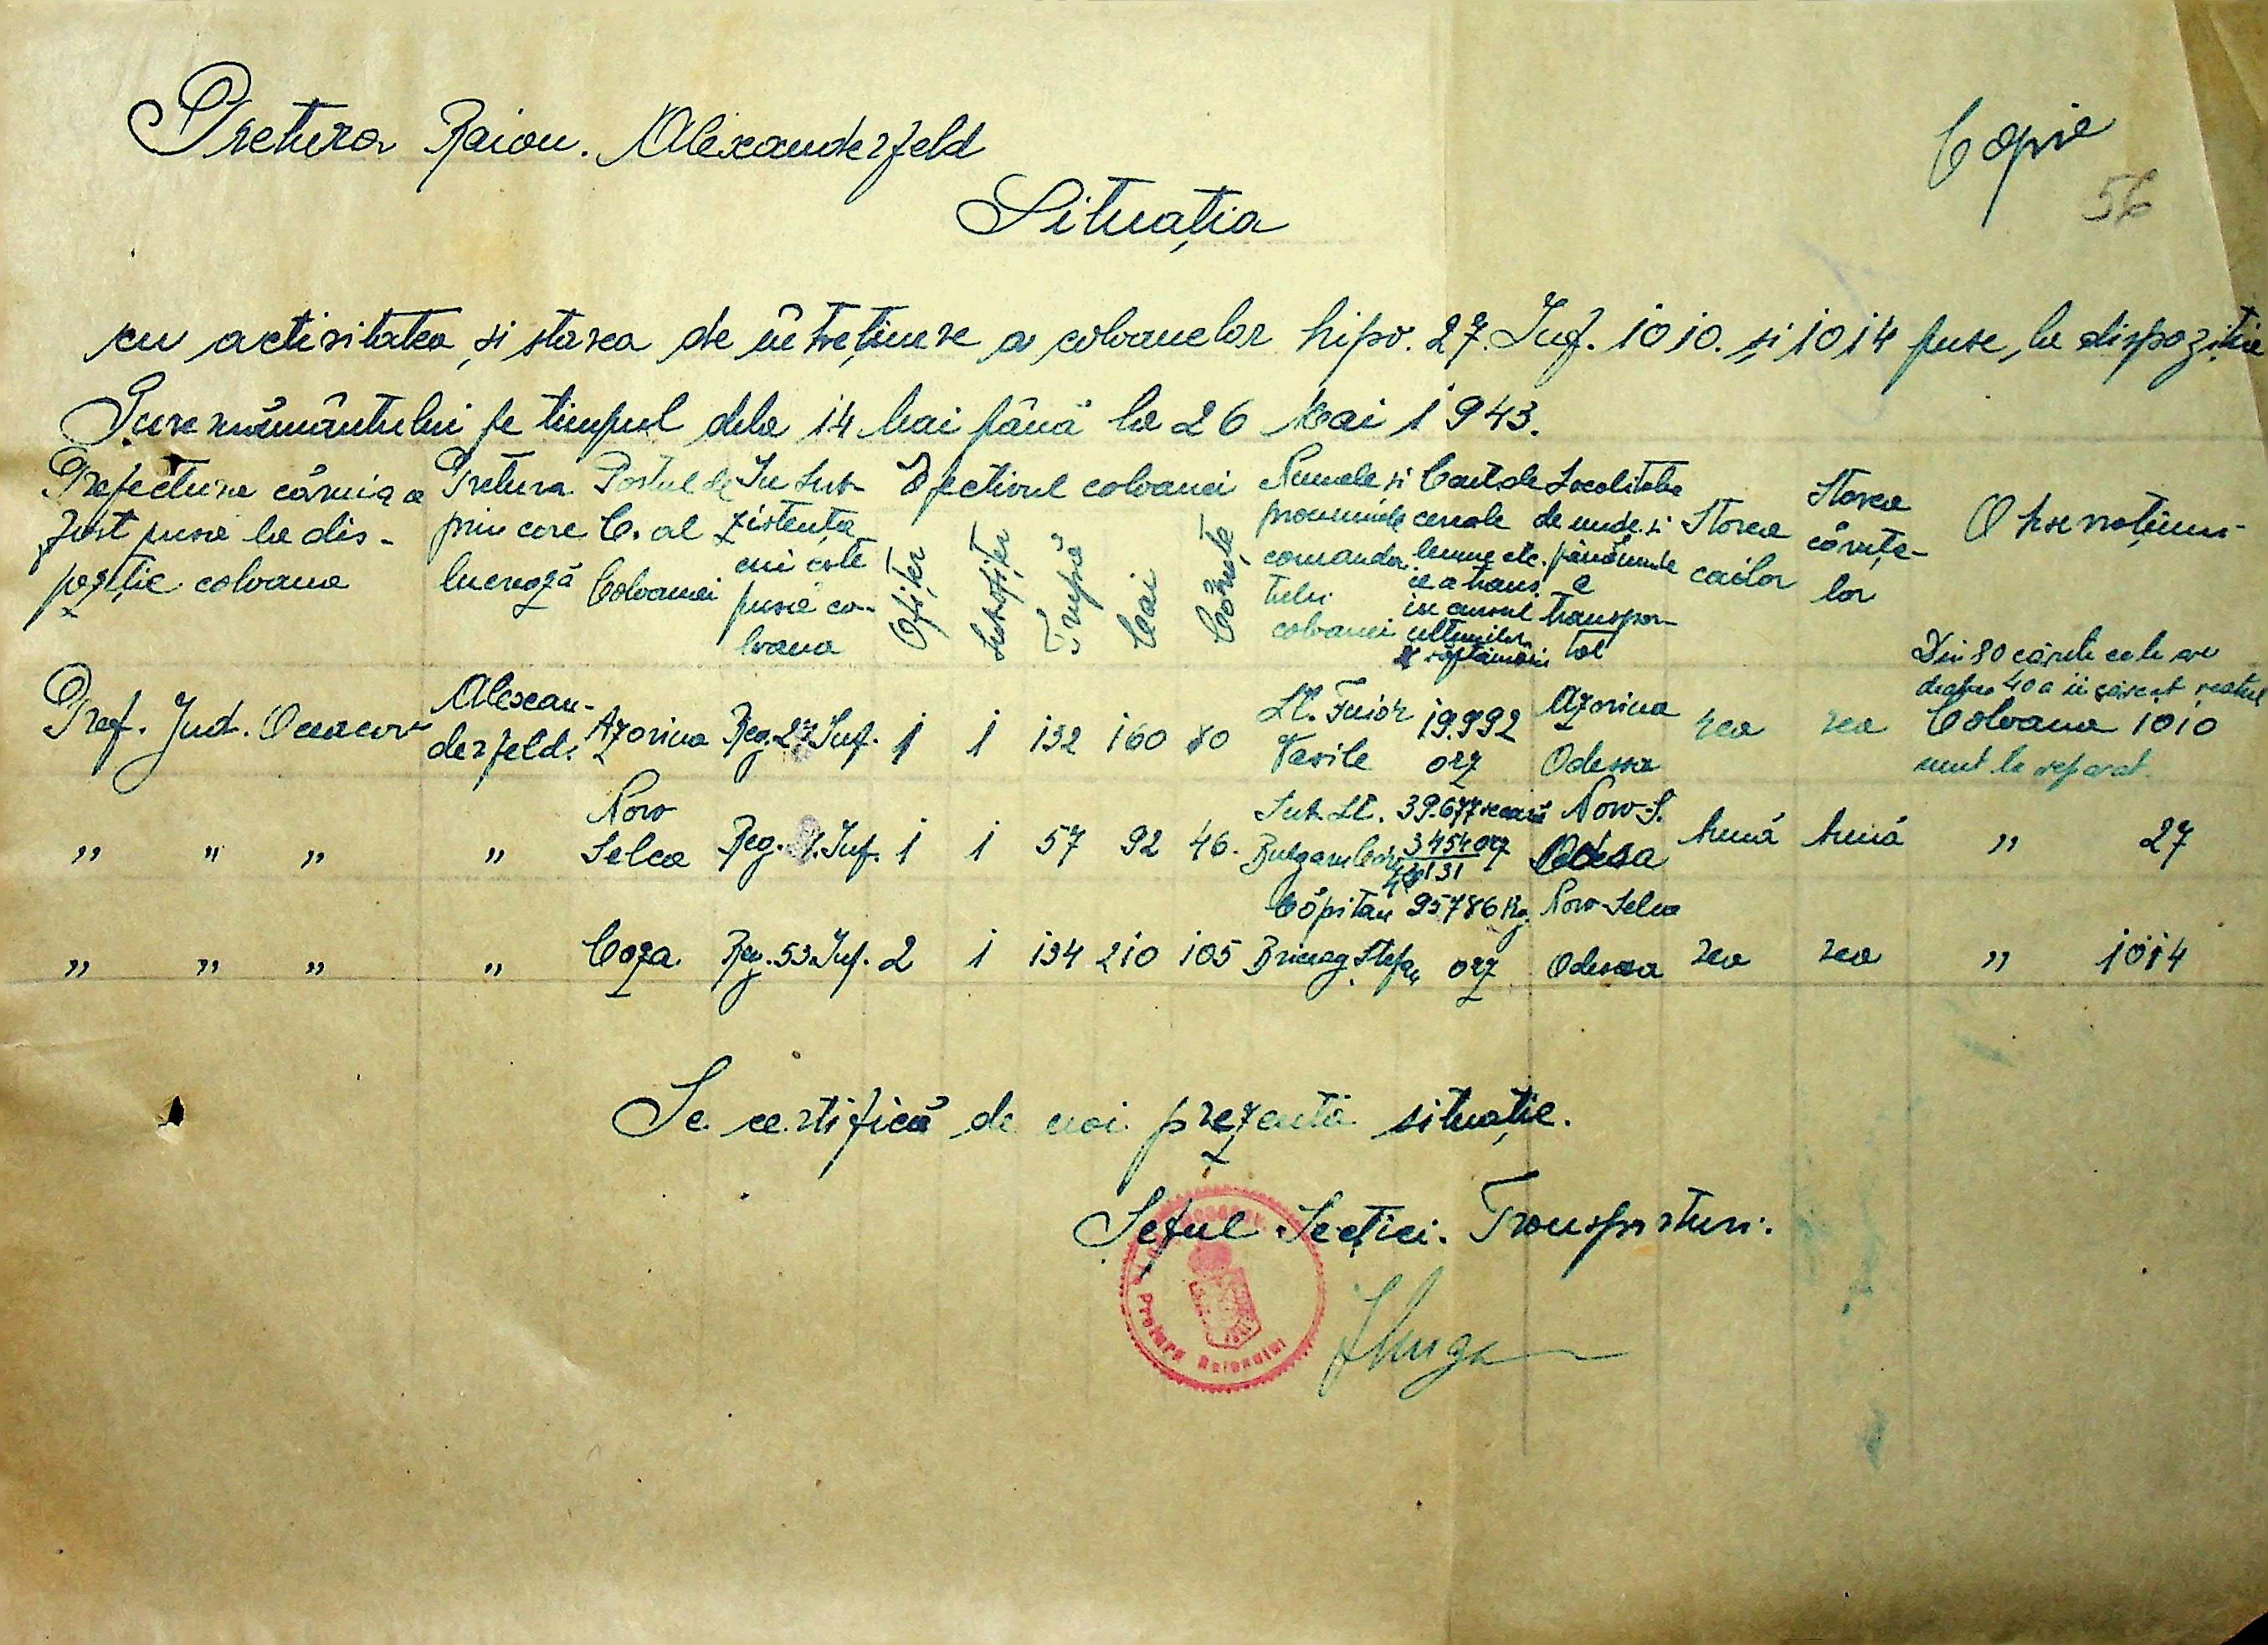 Pretura Raion. Alexanderfeld
Copie
56
Situația
cu activitatea și starea de întreținere a coloanelor hipo. 27. Inf. 1010. și 1014 puse, la dispoziție
Guvernământului pe timpul dela 14 Mai până la 26 Mai 1943.
Prefecture căruia a fost pusă la dispoziție coloana
Pretura prin care lucrează
Postul de C. al Coloanei
In Subzistența cui este pusă coloana
Efectivul coloanei
Ofițer
Subofițer
Trupă
Cai
Căruțe
Numele și pronumele comandantului coloanei
Cant. de cereale lemne etc. ce a trans. in cursul ultimilor 2 săptămâni
Localitatea de unde și până unde a transportat
Starea cailor
Starea căruțelor
Observațiuni
Pref. Jud. Oceacov
Alexanderfeld.
Azorina Reg. 27 Inf. 1 1 132 160 80
Lt. Fuior Vasile
19.992 orz
Azorina Odessa
rea rea
Din 80 căruțe cele 40 Coloana 1010 sunt la reparat.
„ „ „ „
Nov Selca Reg. Inf. 1 1 57 92 46.
Sub. Lt.
39.677 secară
3454 orz
43131
Nov-S. Odesa
bună bună „ 27
„ „ „ „
Coza. Reg. 53. Inf. 2 1 134 210 105
Căpitan Ștefan
95786 Kg. orz
Nov-Selca Odessa
rea rea „ 1014
Se certifică de noi prezenta situație.
Șeful Secției. Transporturi.
Pretura Raionului